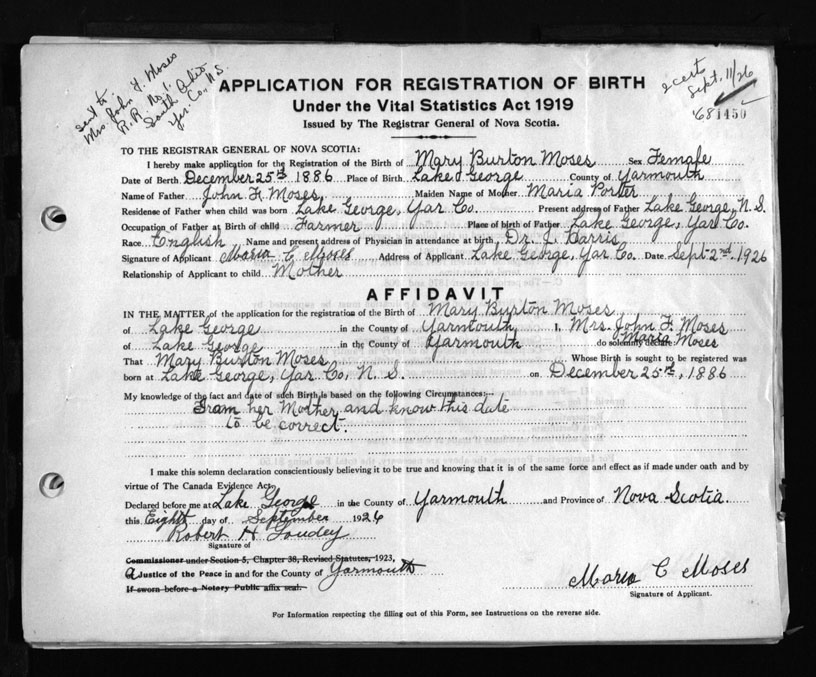 sent to
Mrs. John F. Moses
R.R. No. 1.
South Ohio
Yar. Co., N.S.
2 certs
Sept. 11/26
'68 1450
APPLICATION FOR REGISTRATION OF BIRTH
Under the Vital Statistics Act 1919
Issued by The Registrar General of Nova Scotia.
TO THE REGISTRAR GENERAL OF NOVA SCOTIA:
I hereby make application for the Registration of the Birth of Mary Burton Moses Sex Female
Date of Berth December 25th 1886 Place of Birth Lake George County of Yarmouth
Name of Father John F. Moses Maiden Name of Mother Maria Porter
Residence of Father when child was born Lake George, Yar Co. Present address of Father Lake George, N.S.
Occupation of Father at Birth of child Farmer Place of birth of Father Lake George, Yar Co.
Race English Name and present address of Physician in attendance at birth Dr. J. Harris
Signature of Applicant Maria C Moses Address of Applicant Lake George, Yar Co. Date Sept 2nd, 1926
Relationship of Applicant to child Mother
AFFIDAVIT
IN THE MATTER of the application for the registration of the Birth of Mary Burton Moses
of Lake George in the County of Yarmouth I, Mrs. John F. Moses
of Lake George in the County of Yarmouth do solemnly Maria Moses
That Mary Burton Moses Whose Birth is sought to be registered was
born at Lake George, Yar Co, N.S. on December 25th, 1886
My knowledge of the fact and date of such Birth is based on the following Circumstances:—
I am her Mother and know this date
to be correct.
I make this solemn declaration conscientiously believing it to be true and knowing that it is of the same force and effect as if made under oath and by
virtue of The Canada Evidence Act.
Declared before me at Lake George in the County of Yarmouth and Province of Nova Scotia
this Eight day of September 1926
Robert H Goudey
Signature of
Commissioner under Section 5, Chapter 38, Revised Statutes, 1923,
A Justice of the Peace in and for the County of Yarmouth
If sworn before a Notary Public affix seal.
Maria C Moses
Signature of Applicant.
For Information respecting the filling out of this Form, see Instructions on the reverse side.